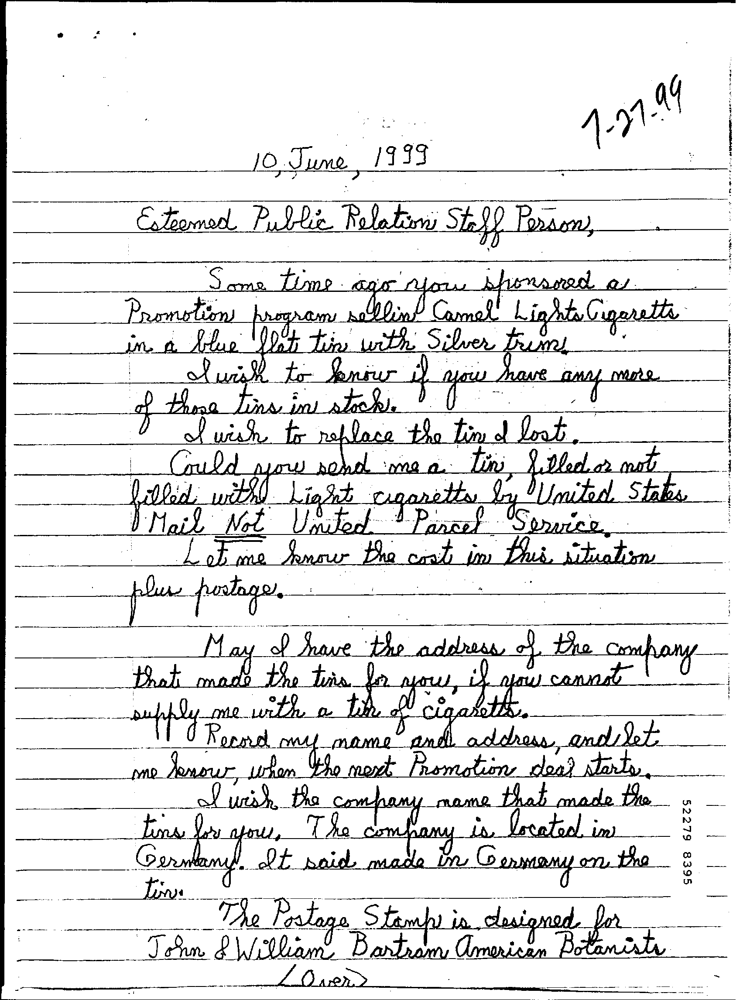 7-27-99
10, June, 1999
Esteemed Public Relation Staff Person,
Some time ago you sponsored a
Promotion program sellin Camel Lights Cigaretts
in a blue flat tin with Silver trim.
I wish to know if you have any more
of those tins in stock.
I wish to replace the tin I lost.
Could you send me a tin, filled or not
filled with Light cigaretts by United States
Mail Not United Parcel Service.
Let me know the cost in this situation
plus postage.
May I have the address of the company
that made the tins for you, if you cannot
supply me with a tin of cigaretts.
Record my name and address, and let
me know, when the next Promotion deal starts.
I wish the company name that made the
tins for you. The company is located in
Germany. It said made in Germany on the
tin.
The Postage Stamp is designed for
John & William Bartram American Botanists
(Over)
52279 8395